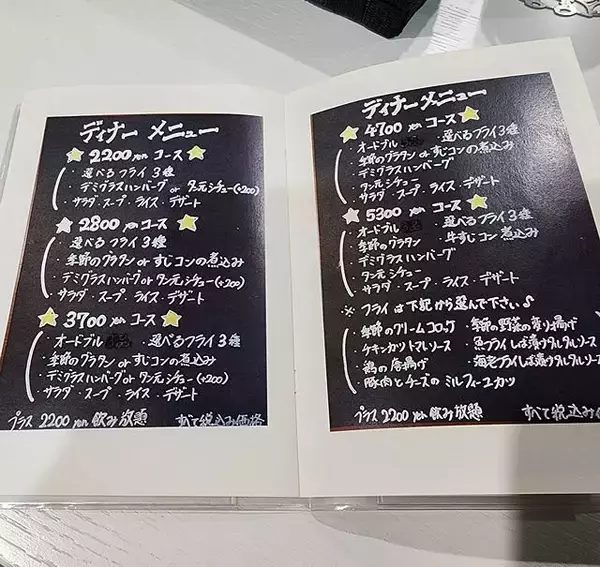 ディナー メニュー
2200 yen コース
・選べるフライ3種
・デミグラスハンバーグ or タン元シチュー(+200)
・サラダ・スープ・ライス・デザート
2800 yen コース
・選べるフライ3種
・季節のグラタン or すじコンの煮込み
・デミグラスハンバーグ or タン元シチュー(+200)
・サラダ・スープ・ライス・デザート
3700 yen コース
・オードブル 選べるフライ3種
・季節のグラタン or すじコンの煮込み
・デミグラスハンバーグ or タン元シチュー(+200)
・サラダ スープ ライス デザート
プラス 2200 yen 飲み放題 すべて税込み価格
ディナー メニュー
4700 yen コース
・オードブル 選べるフライ3種
・季節のグラタン or すじコンの煮込み
・デミグラスハンバーグ
・タン元シチュー
・サラダ・スープ・ライス・デザート
5300 yen コース
・オードブル 選べるフライ3種
・季節のグラタン ・牛すじコン煮込み
・デミグラスハンバーグ
・タン元シチュー
・サラダ・スープ・ライス・デザート
※ フライは下記から選んで下さい♪
・季節のクリームコロッケ ・季節の野菜の変り揚げ
・チキンカツトマトソース ・魚フライしば漬けタルタルソース
・鶏の唐揚げ ・海老フライしば漬けタルタルソース
・豚肉とチーズのミルフィーユカツ
プラス 2200 yen 飲み放題 すべて税込み